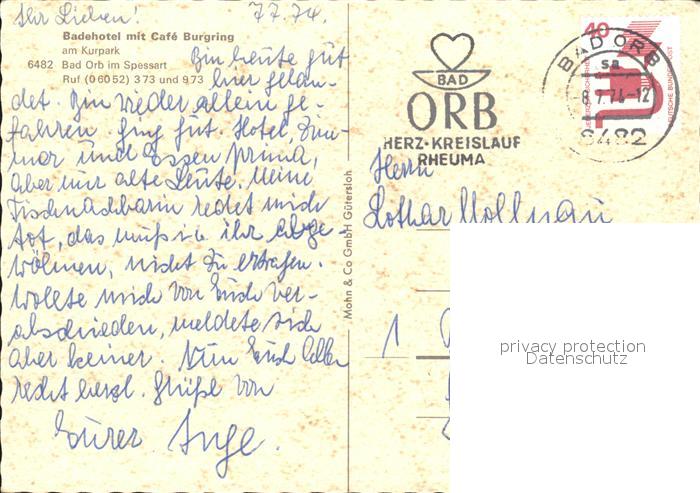 Ihr Lieben! 7.7.74.
Badehotel mit Café Burgring
am Kurpark
6482 Bad Orb im Spessart
Ruf (0 60 52) 3 73 und 9 73
Bin heute gut
hier gelan-
det. Bin wieder allein ge-
fahren. Ging gut. Hotel, Zim-
mer und Essen prima,
aber nur alte Leute. Meine
Tischnachbarin redet mich
tot, das muß ich ihr abge-
wöhnen, nicht zu ertragen.
Wollte mich von Euch ver-
abschieden, meldete sich
aber keiner. Nun Euch Allen
recht herzl. Grüße von
Eurer Inge.
Mohn & Co GmbH Gütersloh
BAD
ORB
HERZ·KREISLAUF
RHEUMA
40
DEUTSCHE BUNDESPOST
BAD ORB
sa
8.7.74-12
6482
Herrn
Lothar Mollnau
1
privacy protection
Datenschutz